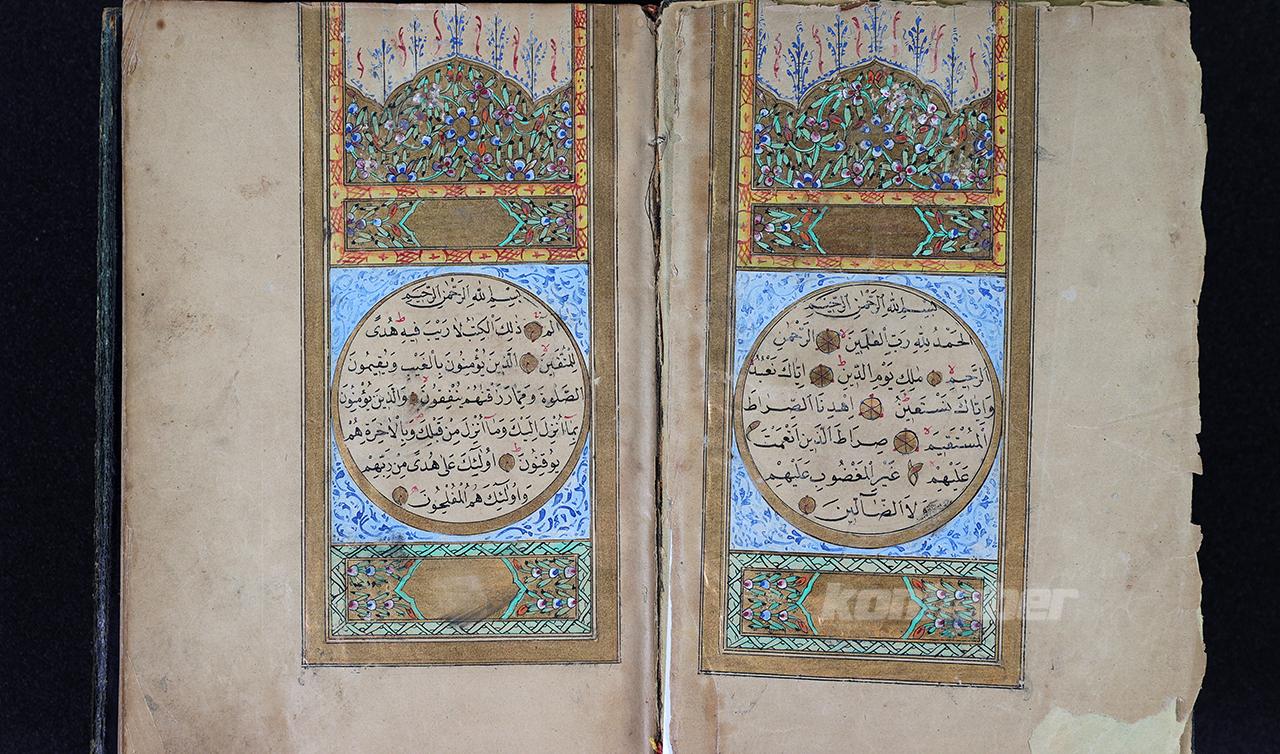 بسم الله الرحمن الرحيم
الحمد لله رب العلمين الرحمن
الرحيم ملك يوم الدين اياك نعبد
واياك نستعين اهدنا الصراط
المستقيم صراط الذين انعمت
عليهم غير المغضوب عليهم
ولا الضالين
بسم الله الرحمن الرحيم
الم ذلك الكتب لا ريب فيه هدى
للمتقين الذين يؤمنون بالغيب ويقيمون
الصلوة ومما رزقناهم ينفقون والذين يؤمنون
بما انزل اليك وما انزل من قبلك وبالاخرة هم
يوقنون اولئك على هدى من ربهم
واولئك هم المفلحون